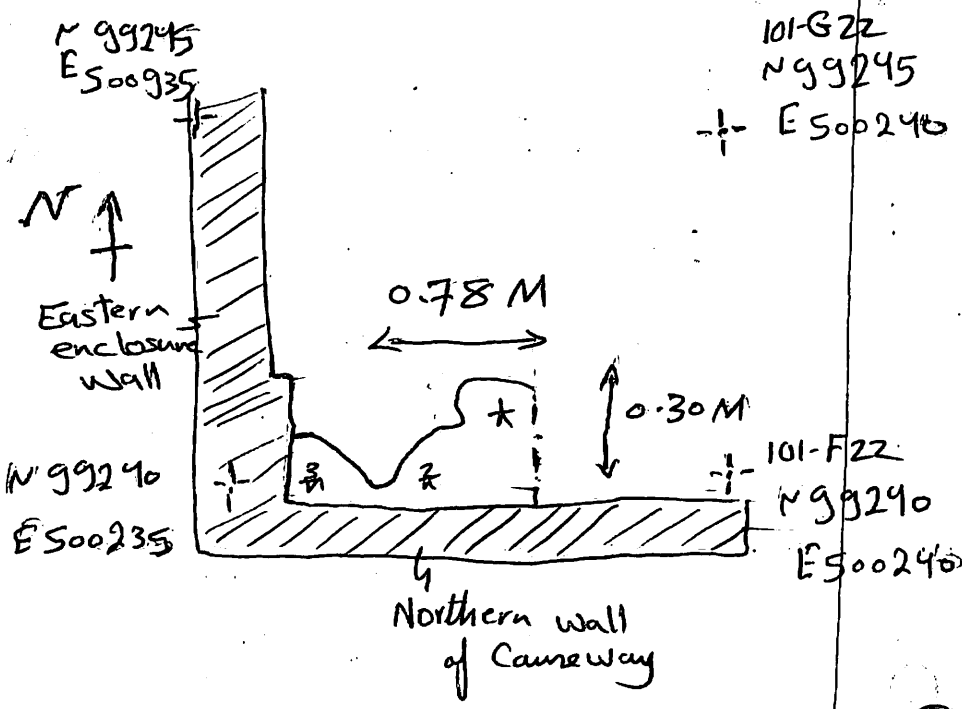 N 99245
E 500935
101-G22
N 99245
E 500240
N
0.78 M
Eastern
enclosure
wall
0.30 M
N 99240
E 500235
101-F22
N 99290
E 500240
Northern wall
of Causeway